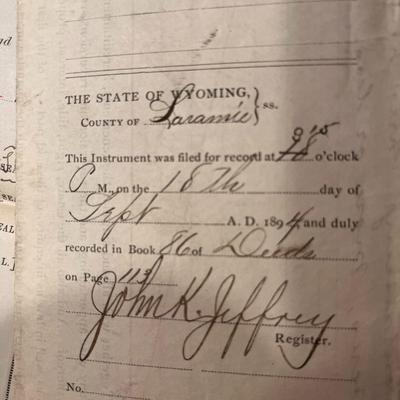 THE STATE OF WYOMING, } ss.
COUNTY OF Laramie
This Instrument was filed for record at o'clock
P M., on the 18th day of
Sept A. D. 1894, and duly
recorded in Book 86 of Deeds
on Page 113
John K. Jeffrey
Register.
No.